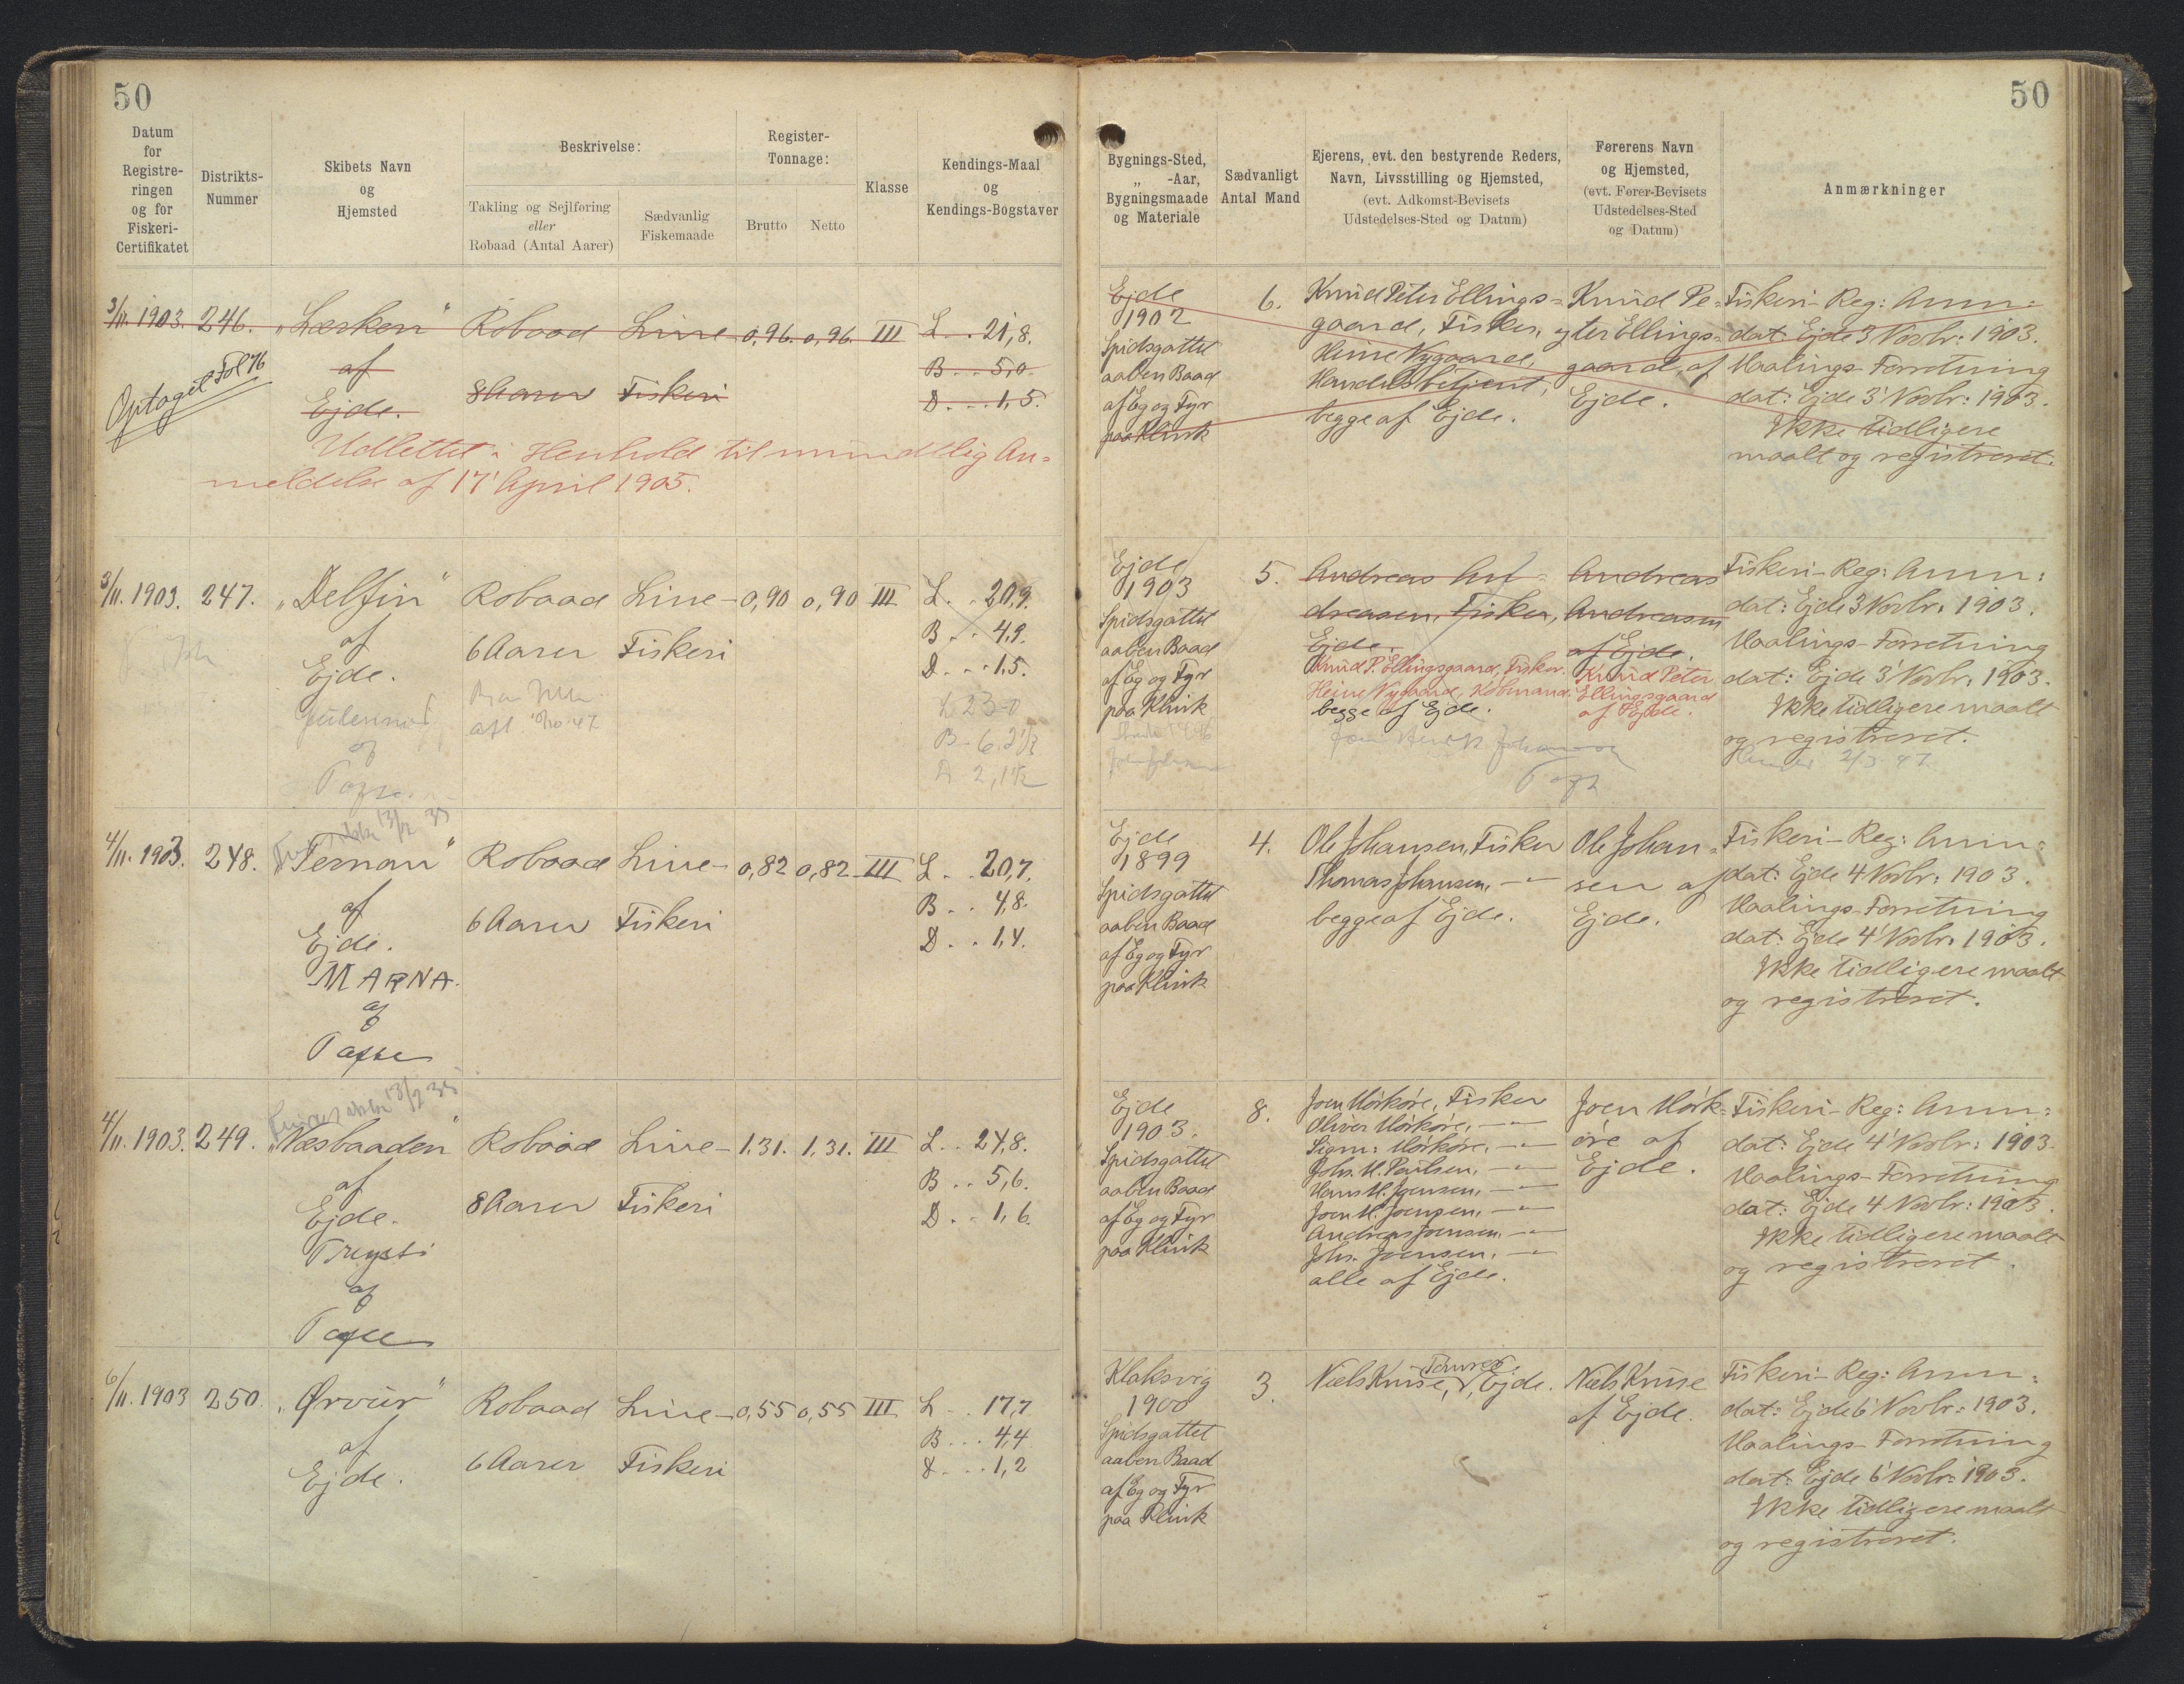 50
50
Datum
for
Registre-
ringen
og for
Fiskeri-
Certifikatet
Distrikts-
Nummer
Skibets Navn
og
Hjemsted
Beskrivelse:
Takling og Sejlføring
eller
Robaad (Antal Aarer)
Sædvanlig
Fiskemaade
Register-
Tonnage:
Brutto
Netto
Klasse
Kendings-Maal
og
Kendings-Bogstaver
Bygnings-Sted,
„ -Aar,
Bygningsmaade
og Materiale
Sædvanligt
Antal Mand
Ejerens, evt. den bestyrende Reders,
Navn, Livsstilling og Hjemsted,
(evt. Adkomst-Bevisets
Udstedelses-Sted og Datum)
Førerens Navn
og Hjemsted,
(evt. Fører-Bevisets
Udstedelses-Sted
og Datum)
Anmærkninger
3/11. 1903. 246. „Lærken" Robaad Line- 0,96. 0,96. III L. . 21,8.
af
8 Aarer Fiskeri
B. . . 5,0.
Ejde.
D. . . 1,5.
Optaget Fol 76
Udslettet i Henhold til mundtlig An=
meldelse af 17' April 1905.
Ejde
1902
Spidsgattet
aaben Baad
af Eg og Fyr
paa Klink
6.
Knud Peter Ellings=
gaard, Fisker, og
Heine Nygaard,
Handelsbetjent,
begge af Ejde.
Knud Pe=
ter Ellings=
gaard af
Ejde.
Fiskeri-Reg: Anm:
dat: Ejde 3 Novbr: 1903.
Maalings-Forretning
dat: Ejde 3' Novbr: 1903.
Ikke tidligere
maalt og registreret.
3/11. 1903. 247. „Delfin" Robaad Line- 0,90 0,90 III L. . 20,9.
af
6 Aarer Fiskeri
B. . . 4,9.
Ejde.
D. . . 1,5.
10/10 47
L 23-0
B- 6,2 1/2
D 2,1 1/2
Ejde
1903
Spidsgattet
aaben Baad
af Eg og Fyr
paa Klink
5.
Andreas An=
dreasen, Fisker,
Ejde.
Knud P. Ellingsgaard, Fisker.
Heine Nygaard, Købmand.
begge af Ejde.
Andreas
Andreasen
af Ejde.
Knud Peter
Ellingsgaard
af Ejde.
Fiskeri-Reg: Anm:
dat: Ejde 3 Novbr. 1903.
Maalings-Forretning
dat: Ejde 3' Novbr. 1903.
Ikke tidligere maalt
og registreret.
4/11. 1903. 248. „Ternan" Robaad Line- 0,82 0,82 III L. . 20,7.
13/2 35
af
6 Aarer Fiskeri
B. . 4,8.
Ejde.
D. . 1,4.
MARNA.
af
Ejde
1899
Spidsgattet
aaben Baad
af Eg og Fyr
paa Klink
4.
Ole Johansen, Fisker
Thomas Johansen, — "
begge af Ejde.
Ole Johan=
sen af
Ejde.
Fiskeri-Reg: Anm:
dat: Ejde 4 Novbr: 1903.
Maalings-Forretning
dat: Ejde 4' Novbr. 1903.
Ikke tidligere maalt
og registreret.
4/11. 1903. 249. „Næsbaaden" Robaad Line- 1,31. 1,31. III L. . 24,8.
13/2 35
af
8 Aarer Fiskeri
B. . 5,6.
Ejde.
D. . 1,6.
Treysti
af
Ejde
1903.
Spidsgattet
aaben Baad
af Eg og Fyr
paa Klink
8.
Joen Mørkøre, Fisker
Oliver Mørkøre, — "
Sigm: Mørkøre, — "
Johs. M. Poulsen, — "
Hans M. Joensen, — "
Joen M. Joensen, — "
Andreas Joensen, — "
Johs. Joensen, — "
alle af Ejde.
Joen Mørk=
øre af
Ejde.
Fiskeri-Reg: Anm:
dat: Ejde 4' Novbr: 1903.
Maalings-Forretning
dat: Ejde 4 Novbr: 1903.
Ikke tidligere maalt
og registreret.
6/11. 1903 250. „Ørvur" Robaad Line- 0,55 0,55 III L . . 17,7
af
6 Aarer Fiskeri
B. . . 4,4
Ejde.
D. . . 1,2
Klaksvig
1900
Spidsgattet
aaben Baad
af Eg og Fyr
paa Klink
3.
Niels Kruse, Ejde.
Niels Kruse
af Ejde.
Fiskeri-Reg: Anm:
dat: Ejde 6' Novbr: 1903.
Maalings-Forretning
dat: Ejde 6' Novbr: 1903.
Ikke tidligere maalt
og registreret.